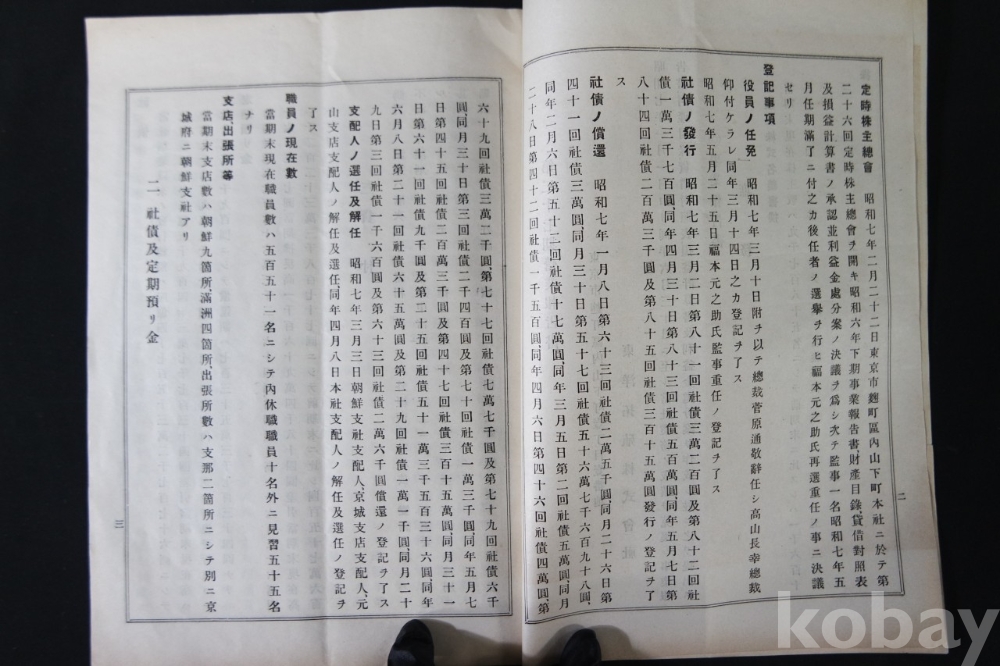 定時株主總會　昭和七年二月二十二日東京市麴町區內山下町本社ニ於テ第
二十六回定時株主總會ヲ開キ昭和六年下期事業報告書財產目錄、貸借對照表
及損益計算書ノ承認並利益金處分案ノ決議ヲ爲シ次テ監事一名昭和七年五
月任期滿了ニ付之カ後任者ノ選舉ヲ行ヒ福本元之助氏再選重任ノ事ニ決議
セリ
登記事項
役員ノ任免　昭和七年三月十日附ヲ以テ總裁菅原通敬辭任シ高山長幸總裁
仰付ケラレ同年三月十四日之カ登記ヲ了ス
昭和七年五月二十五日福本元之助氏監事重任ノ登記ヲ了ス
社債ノ發行　昭和七年三月二日第八十一回社債三萬二百圓及第八十二回社
債一萬三千七百圓、同年四月三十日第八十三回社債五百萬圓、同年五月七日第
八十四回社債二百萬三千圓及第八十五回社債三百十五萬圓發行ノ登記ヲ了
ス
社債ノ償還　昭和七年一月八日第六十三回社債二萬五千圓、同月二十六日第
四十一回社債三萬圓、同月三十日第七十一回社債三百七萬七千六百九十八圓、
同年二月六日第五十二回社債十七萬圓、同年三月五日第二回社債五萬圓、同月
二十八日第四十二回社債一千五百圓、同年四月六日第四十六回社債四萬圓、第
二
六十九回社債三萬二千圓、第七十七回社債七萬七千圓及第七十九回社債六千
圓、同月三十日第三回社債二千四百圓及第七十回社債一萬三千圓、同年五月七
日第四十五回社債二百萬三千圓及第四十七回社債三百十五萬圓、同月三十一
日第六十一回社債九千圓及第二十五回社債五十一萬三千五百三十六圓、同年
六月八日第二十一回社債六十五萬圓及第二十九回社債一萬一千圓、同月二十
九日第三回社債一千六百圓及第六十三回社債二萬六千圓償還ノ登記ヲ了ス
支配人ノ選任及解任　昭和七年三月三日朝鮮支社支配人、京城支店支配人、元
山支店支配人ノ解任及選任、同年四月八日本社支配人ノ解任及選任ノ登記ヲ
了ス
職員ノ現在數
當期末現在職員數ハ五百五十一名ニシテ內休職職員十名外ニ見習五十五名
ナリ
支店、出張所等
當期末支店數ハ朝鮮九箇所、滿洲四箇所、出張所數ハ支那二箇所ニシテ別ニ京
城府ニ朝鮮支社アリ
二　社債及定期預リ金
三
kobay